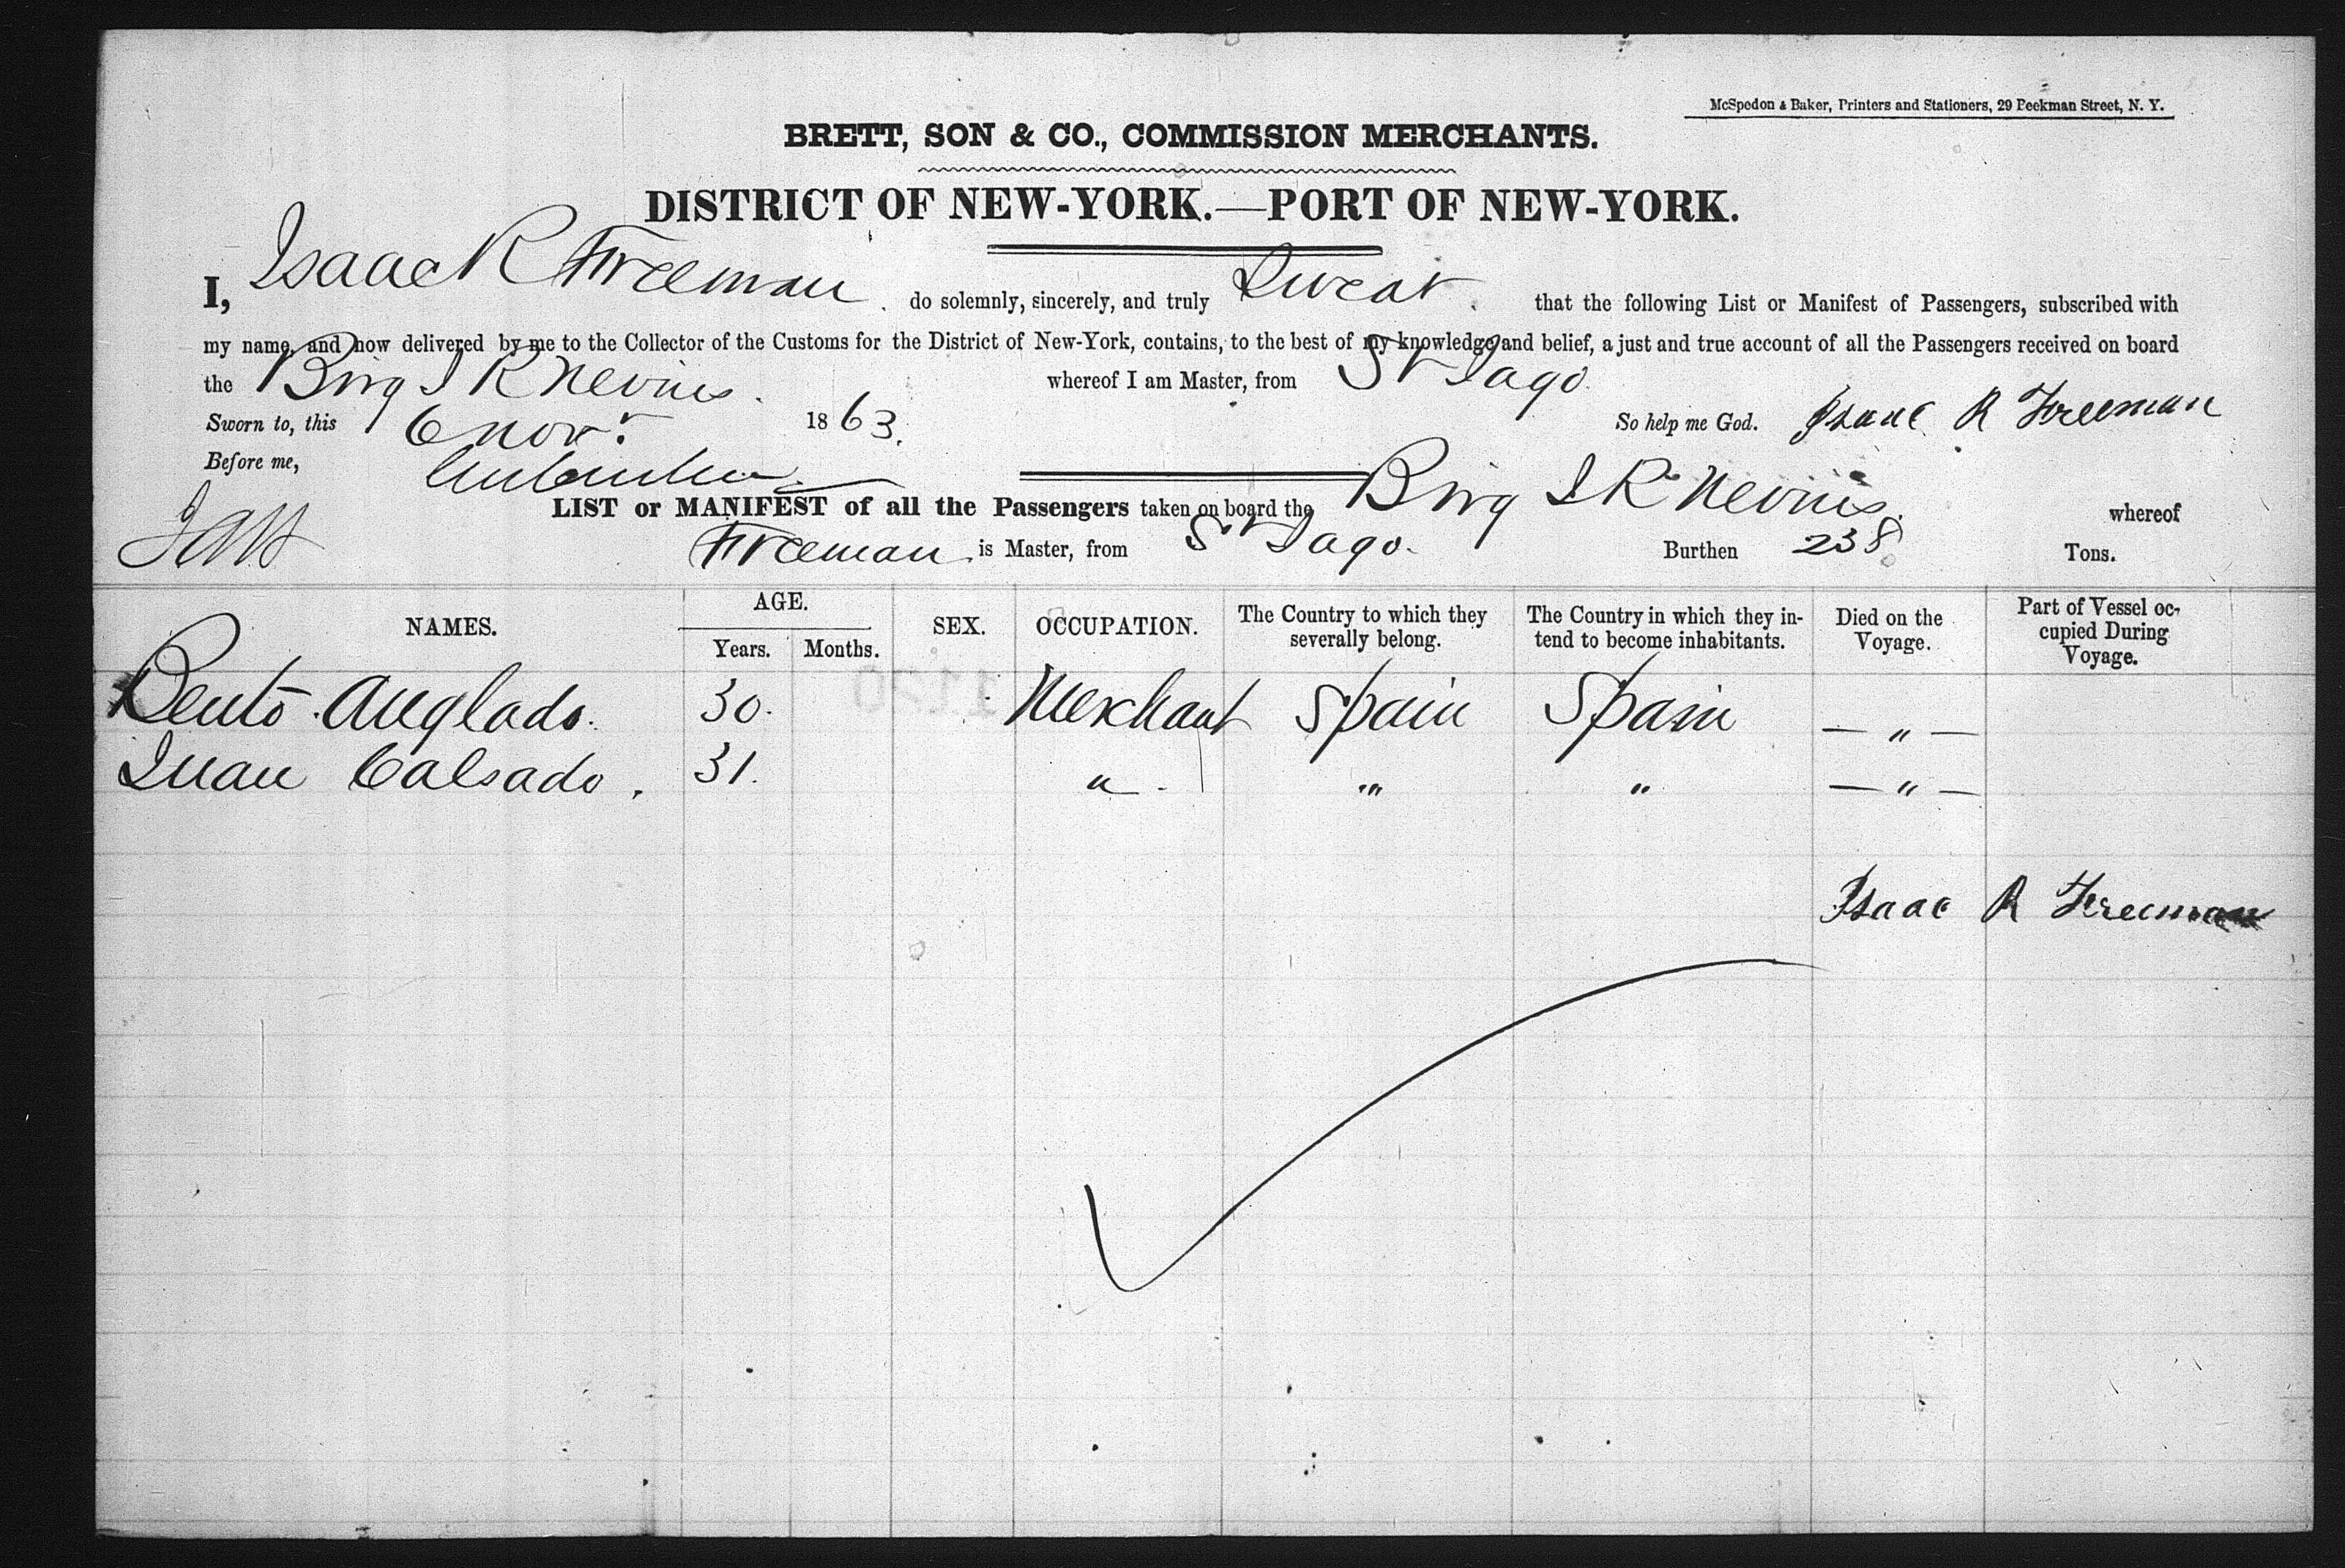 McSpedon & Baker, Printers and Stationers, 29 Beekman Street, N. Y.
BRETT, SON & CO., COMMISSION MERCHANTS.
DISTRICT OF NEW-YORK.—PORT OF NEW-YORK.
I, Isaac R Freeman do solemnly, sincerely, and truly Swear that the following List or Manifest of Passengers, subscribed with
my name, and now delivered by me to the Collector of the Customs for the District of New-York, contains, to the best of my knowledge and belief, a just and true account of all the Passengers received on board
the Brig I R Nevins. whereof I am Master, from St Iago.
Sworn to, this 6 Novr. 1863. So help me God. Isaac R Freeman
Before me,
LIST or MANIFEST of all the Passengers taken on board the Brig I R Nevins. whereof
Freeman is Master, from St Iago. Burthen 238 Tons.
NAMES. AGE. Years. Months. SEX. OCCUPATION. The Country to which they severally belong. The Country in which they intend to become inhabitants. Died on the Voyage. Part of Vessel occupied During Voyage.
Bento Anglado. 30. Merchant Spain Spain — " —
Juan Calsado. 31. " " " — " —
Isaac R Freeman